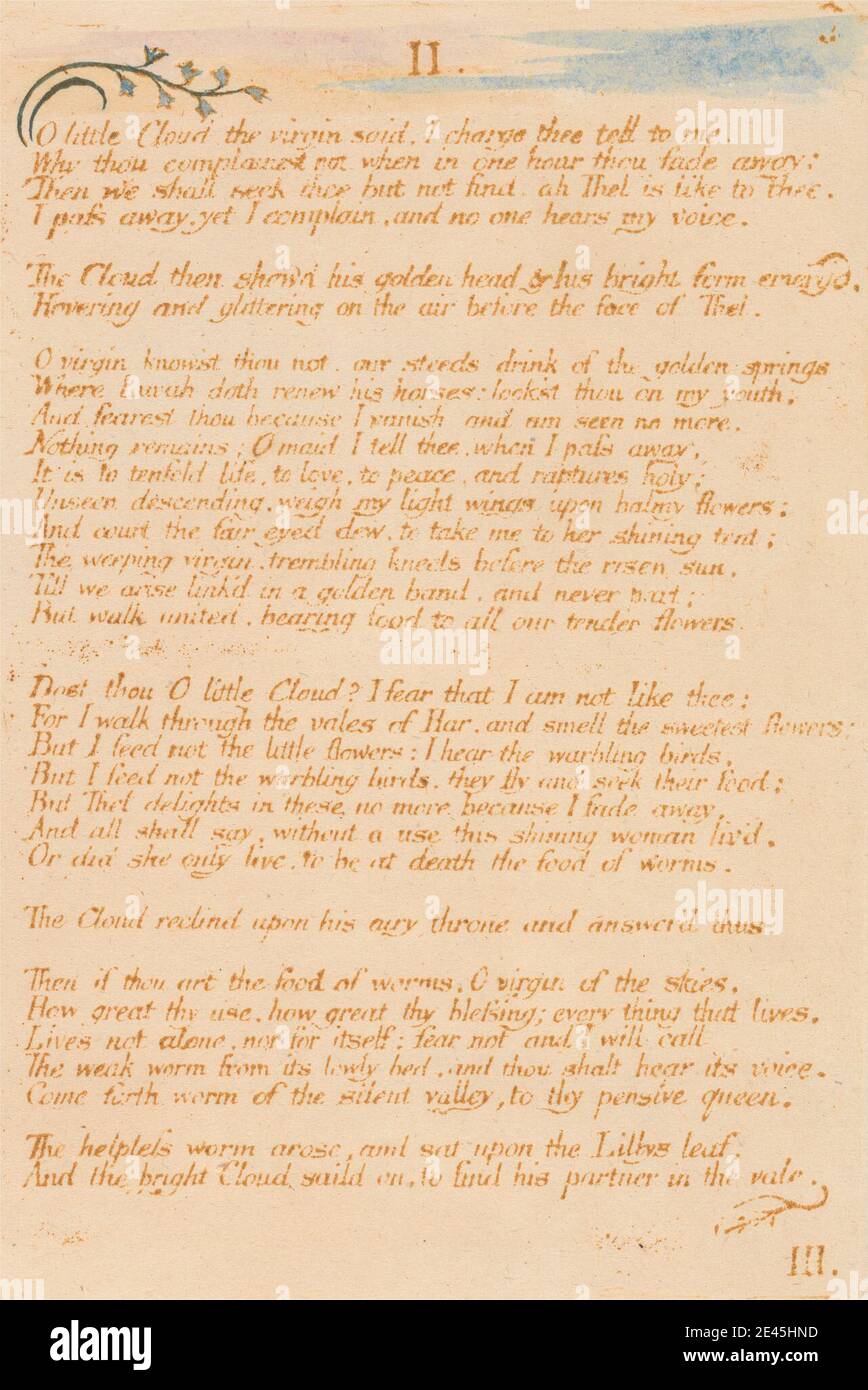 II.
O little Cloud the virgin said, I charge thee tell to me,
Why thou complainest not when in one hour thou fade away:
Then we shall seek thee but not find. ah Thel is like to Thee.
I pass away. yet I complain, and no one hears my voice.
The Cloud then shew'd his golden head & his bright form emerg'd,
Hovering and glittering on the air before the face of Thel.
O virgin know'st thou not. our steeds drink of the golden springs
Where Luvah doth renew his horses: look'st thou on my youth,
And fearest thou because I vanish and am seen no more.
Nothing remains; O maid I tell thee, when I pass away,
It is to tenfold life, to love, to peace, and raptures holy:
Unseen descending, weigh my light wings upon balmy flowers:
And court the fair eyed dew. to take me to her shining tent;
The weeping virgin, trembling kneels before the risen sun,
Till we arise link'd in a golden band, and never part;
But walk united, bearing food to all our tender flowers
Dost thou O little Cloud? I fear that I am not like thee:
For I walk through the vales of Har. and smell the sweetest flowers;
But I feed not the little flowers: I hear the warbling birds,
But I feed not the warbling birds. they fly and seek their food;
But Thel delights in these no more because I fade away,
And all shall say, without a use this shining woman liv'd,
Or did she only live. to be at death the food of worms.
The Cloud reclind upon his airy throne and answerd thus.
Then if thou art the food of worms. O virgin of the skies,
How great thy use. how great thy blessing; every thing that lives,
Lives not alone, nor for itself: fear not and I will call
The weak worm from its lowly bed, and thou shalt hear its voice.
Come forth worm of the silent valley, to thy pensive queen.
The helpless worm arose, and sat upon the Lillys leaf,
And the bright Cloud saild on, to find his partner in the vale.
III.
alamy
Image ID: 2E45HND
www.alamy.com